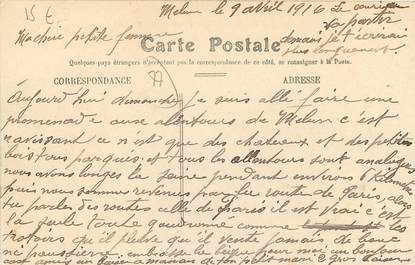 15 €
Melun le 9 avril 1916 Le courrier
va partir
demain je t'écrirai
plus longuement.
Ma chérie petite femme
Carte Postale
Quelques pays étrangers n'acceptent pas la correspondance de ce côté, se renseigner à la Poste.
CORRESPONDANCE
77
ADRESSE
Aujourd'hui dimanche je suis allé faire une
promenade aux alentours de Melun c'est
ravissant ce n'est que des chateaux et des petits
bois tous parqués et tous les alentours sont analogues
nous avons longés la Seine pendant environ 6 kilomètres
puis nous sommes revenus par la route de Paris, alors
tu parles des routes celle de Paris il est vrai c'est
la seule toute goudronnée comme
les trotoirs qu'il pleuve qu'il vente jamais de boue
ni poussière embrasse